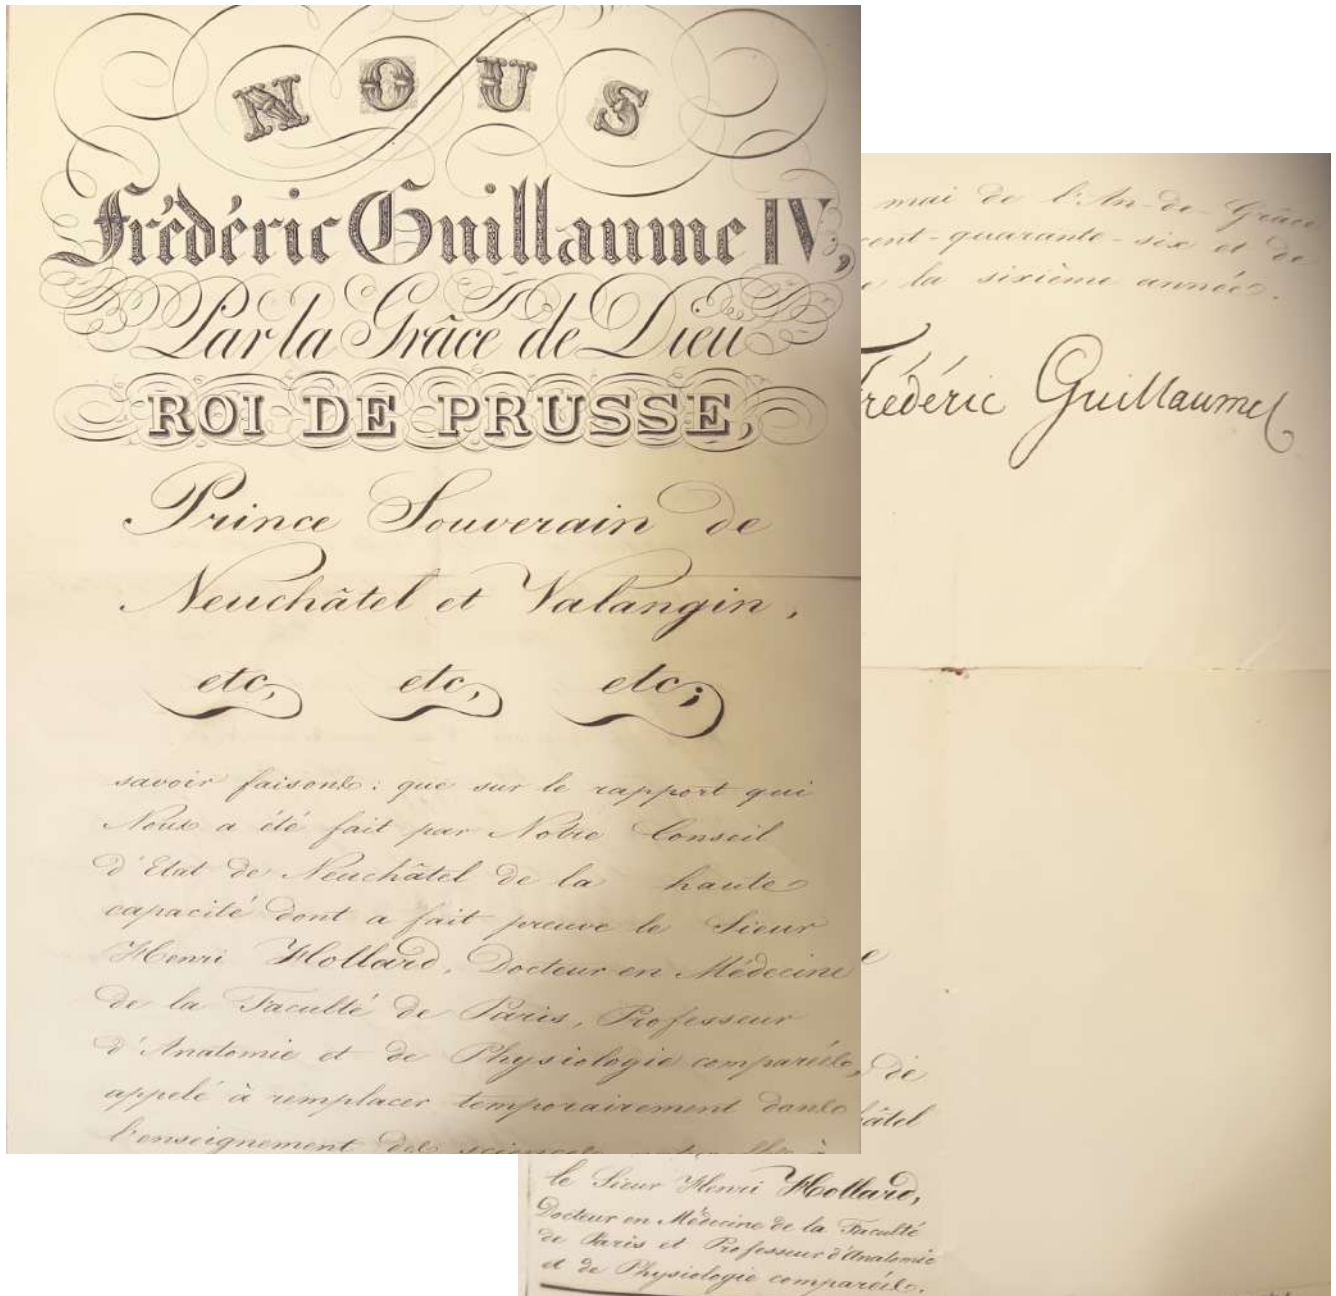 NOUS
Frédéric Guillaume IV,
Par la Grâce de Dieu
ROI DE PRUSSE,
Prince Souverain de
Neuchâtel et Valangin,
etc, etc, etc;
savoir faisons: que sur le rapport qui
Nous a été fait par Notre Conseil
d'Etat de Neuchâtel de la haute
capacité dont a fait preuve le Sieur
Henri Hollard, Docteur en Médecine
de la Faculté de Paris, Professeur
d'Anatomie et de Physiologie comparées,
appelé à remplacer temporairement dans
l'enseignement des sciences naturelles à
mai de l'An-de-Grâce
cent-quarante-six et de
la sixième année.
Frédéric Guillaume
de
âtel
le Sieur Henri Hollard,
Docteur en Médecine de la Faculté
de Paris et Professeur d'Anatomie
et de Physiologie comparées.